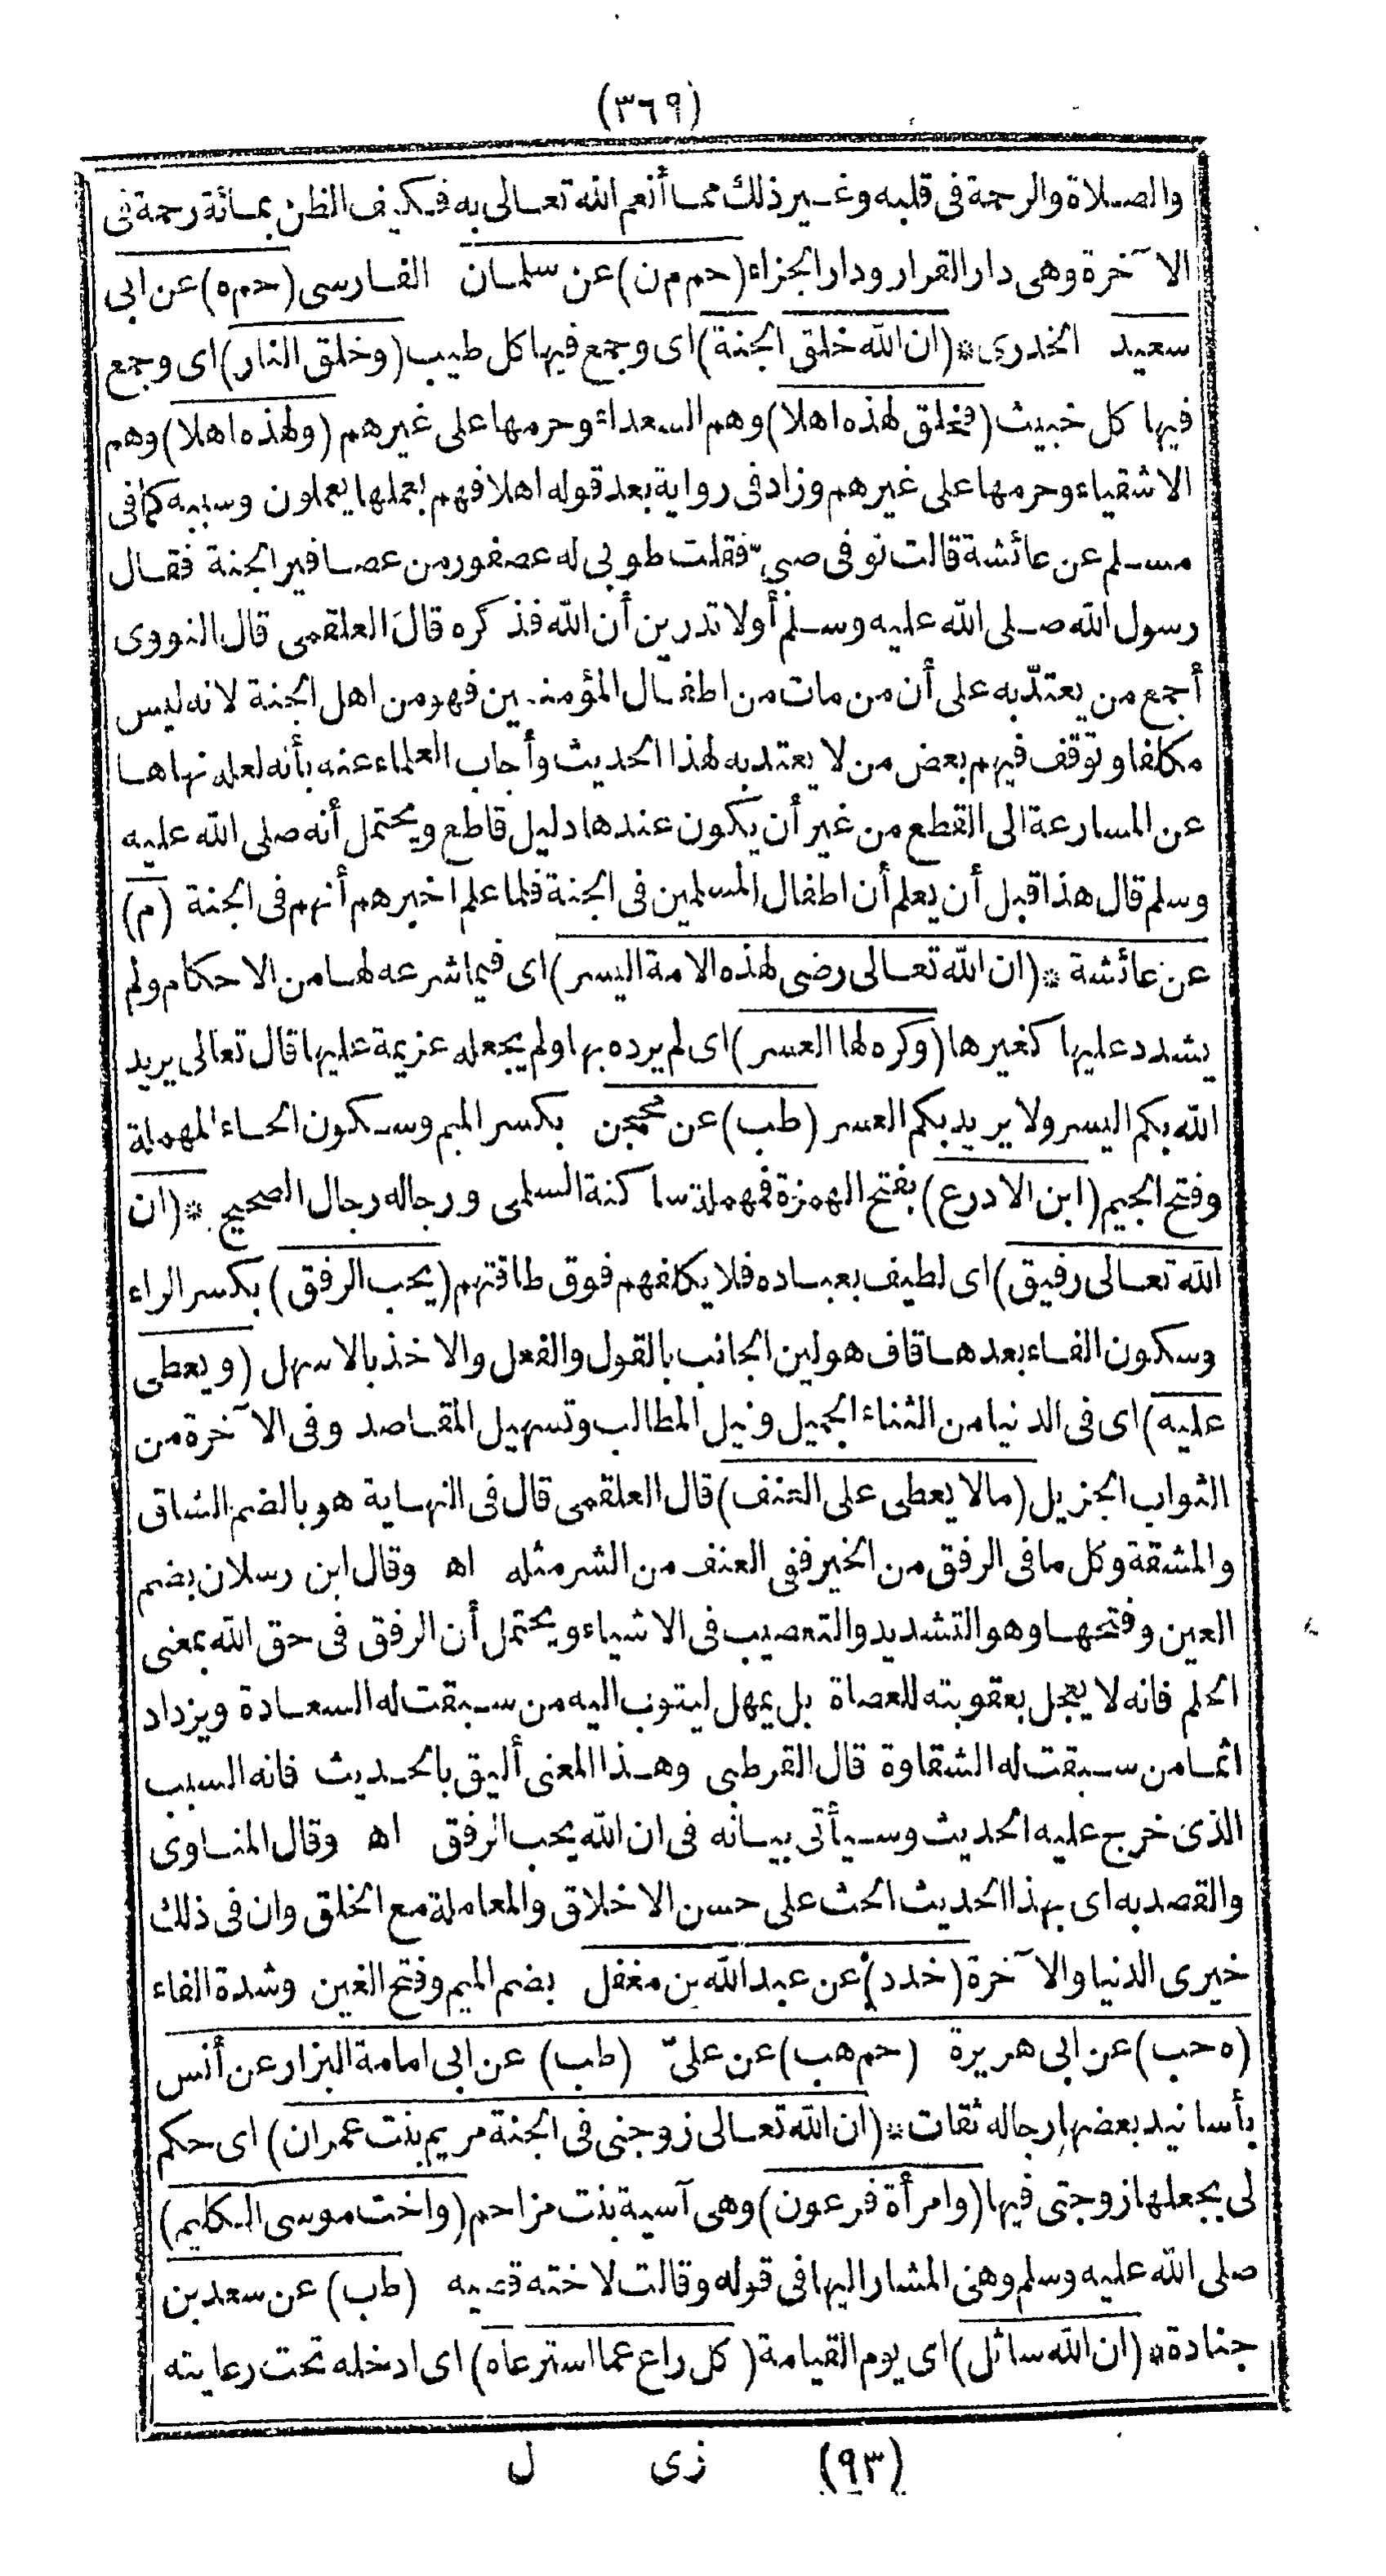 (٣٦٩)
والصلاة والرحمة فى قلبه وغير ذلك مما أنعم الله تعالى به فكيف الظن بمائة رحمة فى
الآخرة وهى دار القرار ودار الجزاء (حم م ن) عن سلمان الفارسى (حم ه) عن ابى
سعيد الخدرى * (ان الله خلق الجنة) اى وجمع فيها كل طيب (وخلق النار) اى وجمع
فيها كل خبيث (فخلق لهذه اهلا) وهم السعداء وحرمها على غيرهم (ولهذه اهلا) وهم
الاشقياء وحرمها على غيرهم وزاد فى رواية بعد قوله اهلا فهم بعملها يعملون وسببه كما فى
مسلم عن عائشة قالت توفى صبىّ فقلت طوبى له عصفور من عصافير الجنة فقال
رسول الله صلى الله عليه وسلم أو لا تدرين أن الله فذكره قال العلقمى قال النووى
أجمع من يعتدّ به على أن من مات من اطفال المؤمنين فهو من اهل الجنة لانه ليس
مكلفا وتوقف فيهم بعض من لا يعتد به لهذا الحديث وأجاب العلماء عنه بأنه لعله نهاها
عن المسارعة الى القطع من غير أن يكون عندها دليل قاطع ويحتمل أنه صلى الله عليه
وسلم قال هذا قبل أن يعلم أن اطفال المسلمين فى الجنة فلما علم اخبرهم أنهم فى الجنة (م)
عن عائشة * (ان الله تعالى رضى لهذه الامة اليسر) اى فيما شرعه لها من الاحكام ولم
يشدد عليها كغيرها (وكره لها العسر) اى لم يرده بها ولم يجعله عزيمة عليها قال تعالى يريد
الله بكم اليسر ولا يريد بكم العسر (طب) عن محجن بكسر الميم وسكون الحاء المهملة
وفتح الجيم (ابن الادرع) بفتح الهمزة فمهملة ساكنة السلمى ورجاله رجال الصحيح * (ان
الله تعالى رفيق) اى لطيف بعباده فلا يكلفهم فوق طاقتهم (يحب الرفق) بكسر الراء
وسكون الفاء بعدها قاف هو لين الجانب بالقول والفعل والاخذ بالاسهل (ويعطى
عليه) اى فى الدنيا من الثناء الجميل ونيل المطالب وتسهيل المقاصد وفى الآخرة من
الثواب الجزيل (ما لا يعطى على العنف) قال العلقمى قال فى النهاية هو بالضم الشاق
والمشقة وكل ما فى الرفق من الخير ففى العنف من الشر مثله اه وقال ابن رسلان بضم
العين وفتحها وهو التشديد والتعصيب فى الاشياء ويحتمل أن الرفق فى حق الله بمعنى
الحلم فانه لا يعجل بعقوبته للعصاة بل يمهل ليتوب اليه من سبقت له السعادة ويزداد
اثما من سبقت له الشقاوة قال القرطبى وهذا المعنى أليق بالحديث فانه السبب
الذى خرج عليه الحديث وسيأتى بيانه فى ان الله يحب الرفق اه وقال المناوى
والقصد به اى بهذا الحديث الحث على حسن الاخلاق والمعاملة مع الخلق وان فى ذلك
خيرى الدنيا والآخرة (خدد) عن عبد الله بن مغفل بضم الميم وفتح الغين وشدة الفاء
(ه حب) عن ابى هريرة (حم هب) عن علىّ (طب) عن ابى امامة البزار عن أنس
بأسانيد بعضها رجاله ثقات * (ان الله تعالى زوجنى فى الجنة مريم بنت عمران) اى حكم
لى بجعلها زوجتى فيها (وامرأة فرعون) وهى آسية بنت مزاحم (واخت موسى الكليم)
صلى الله عليه وسلم وهى المشار اليها فى قوله وقالت لاخته قصيه (طب) عن سعد بن
جنادة * (ان الله سائل) اى يوم القيامة (كل راع عما استرعاه) اى ادخله تحت رعايته
(٩٣) زى ل